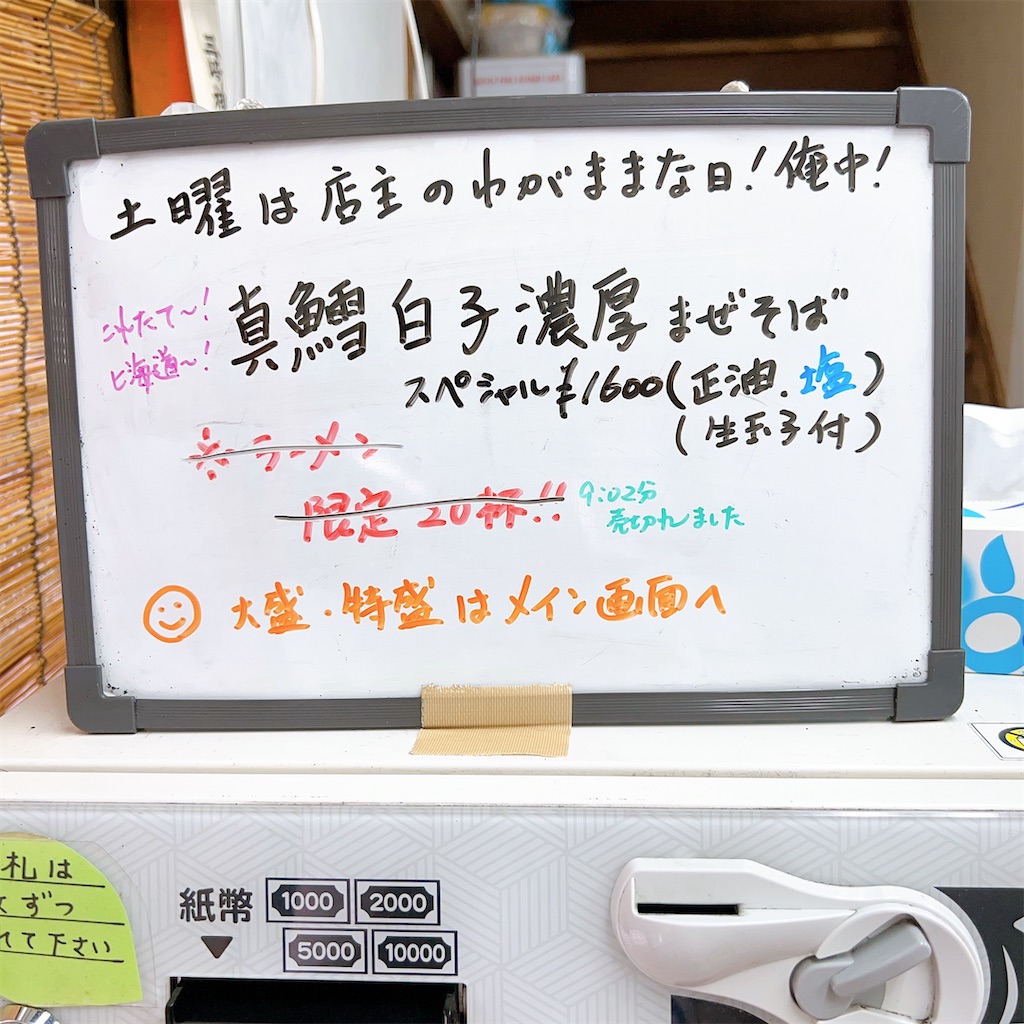 土曜は店主のわがままな日!俺中!
とれたて〜!
北海道〜!
真鱈白子濃厚まぜそば
スペシャル¥1600(正油.塩)
(生玉子付)
※ラーメン
限定20杯!!
9:02分
売切れました
大盛・特盛はメイン画面へ
札は
ずつ
れて下さい
紙幣
1000 2000
5000 10000